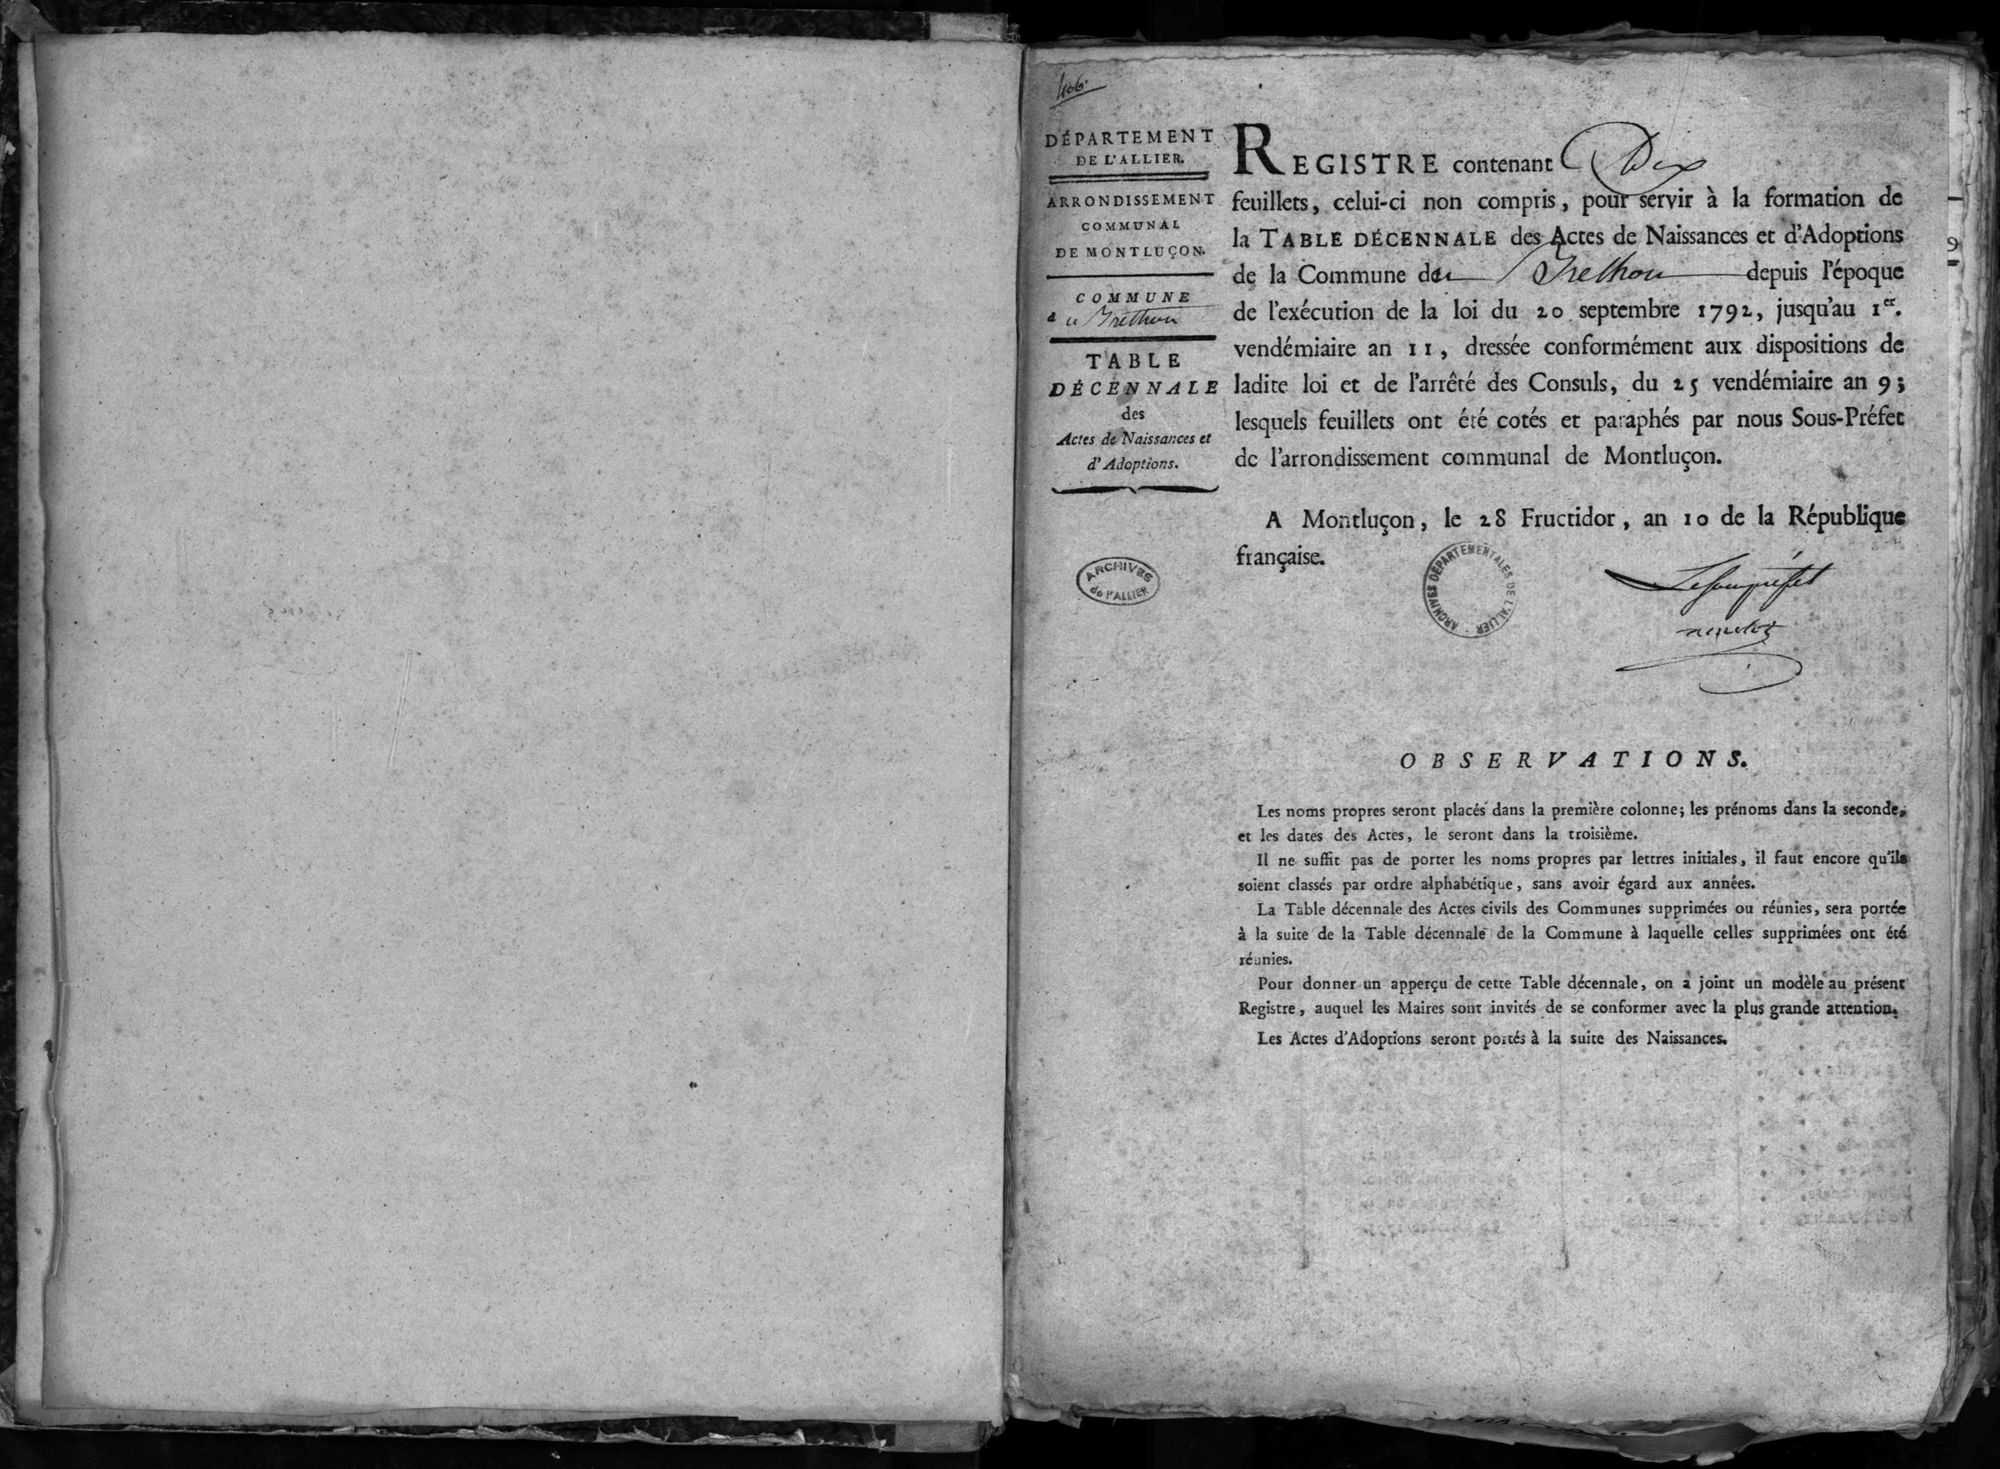 406.
DÉPARTEMENT
DE L'ALLIER.
ARRONDISSEMENT
COMMUNAL
DE MONTLUÇON.
COMMUNE
du Brethon
TABLE
DÉCENNALE
des
Actes de Naissances et
d'Adoptions.
ARCHIVES
de l'ALLIER
REGISTRE contenant Dix
feuillets, celui-ci non compris, pour servir à la formation de
la TABLE DÉCENNALE des Actes de Naissances et d'Adoptions
de la Commune du Brethon depuis l'époque
de l'exécution de la loi du 20 septembre 1792, jusqu'au 1er.
vendémiaire an 11, dressée conformément aux dispositions de
ladite loi et de l'arrêté des Consuls, du 25 vendémiaire an 9;
lesquels feuillets ont été cotés et paraphés par nous Sous-Préfet
de l'arrondissement communal de Montluçon.
A Montluçon, le 28 Fructidor, an 10 de la République
française.
ARCHIVES DÉPARTEMENTALES DE L'ALLIER
Le souspréfet
OBSERVATIONS.
Les noms propres seront placés dans la première colonne; les prénoms dans la seconde,
et les dates des Actes, le seront dans la troisième.
Il ne suffit pas de porter les noms propres par lettres initiales, il faut encore qu'ils
soient classés par ordre alphabétique, sans avoir égard aux années.
La Table décennale des Actes civils des Communes supprimées ou réunies, sera portée
à la suite de la Table décennale de la Commune à laquelle celles supprimées ont été
réunies.
Pour donner un apperçu de cette Table décennale, on a joint un modèle au présent
Registre, auquel les Maires sont invités de se conformer avec la plus grande attention.
Les Actes d'Adoptions seront portés à la suite des Naissances.